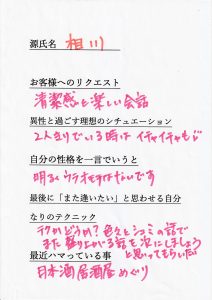 源氏名 相川
お客様へのリクエスト
清潔感と楽しい会話
異性と過ごす理想のシチュエーション
2人きりでいる時はイチャイチャもじ
自分の性格を一言でいうと
明るくウラオモテはないです
最後に「また逢いたい」と思わせる自分
なりのテクニック
テクかどうか？色々しコミの話で
また盛り上がる話を次にしましょう
と思ってもらいたい
最近ハマっている事
日本酒居酒屋めぐり